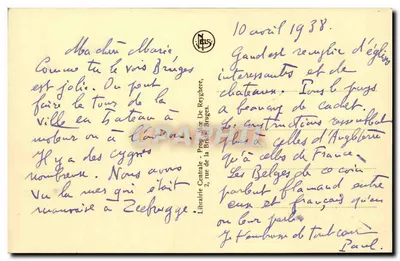 Ma chère Marie
Comme tu le vois Bruges
est jolie. On peut
faire le tour de la
ville en bateau à
moteur ou à
Il y a des cygnes
nombreux. Nous avons
vu la mer qui était
mauvaise à Zeebrugge.
Librairie Centrale - De Reyghere,
2, rue de la Bruges.
NELS
10 avril 1938.
Gand est remplie d'églises
interessantes et de
chateaux. Tous le pays
a beaucoup de cachet.
Les constructions ressemblent
plus à celles d'Angleterre
qu'à celles de France.
Les Belges de ce coin
parlent flamand entre
eux et français qu'un
ou leur parle.
Je t'embrasse de tout coeur
Paul.